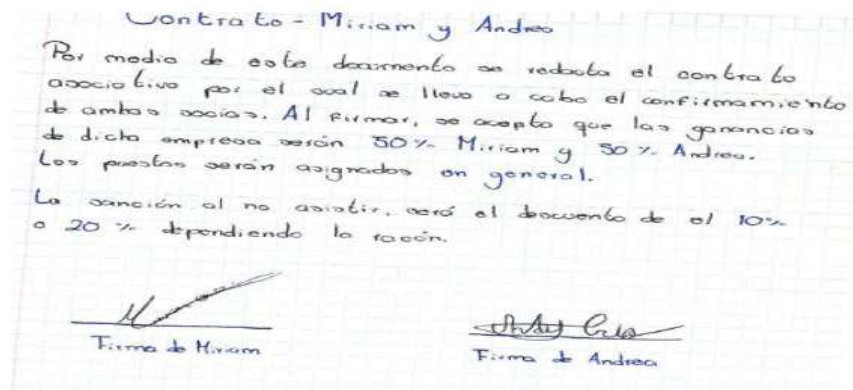 Contrato - Miriam y Andrea
Por medio de este documento se redacta el contrato
asociativo por el cual se lleva a cabo el confirmamiento
de ambas socias. Al firmar, se acepta que las ganancias
de dicha empresa serán 50% Miriam y 50% Andrea.
Los puestos serán asignados en general.
La sanción al no asistir, será el descuento de el 10%
o 20% dependiendo la razón.
Firma de Miriam
Firma de Andrea